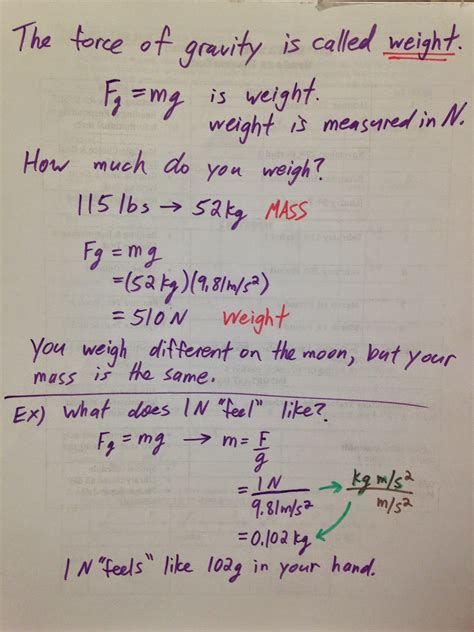 The force of gravity is called weight.
Fg = mg is weight.
weight is measured in N.
How much do you weigh?
115 lbs → 52kg MASS
Fg = mg
=(52kg)(9.81m/s²)
= 510 N Weight
You weigh different on the moon, but your
mass is the same.
Ex) What does 1N "feel" like?
Fg = mg → m = F/g
= 1N/9.81m/s² → kg m/s²/m/s²
=0.102kg
1 N "feels" like 102g in your hand.